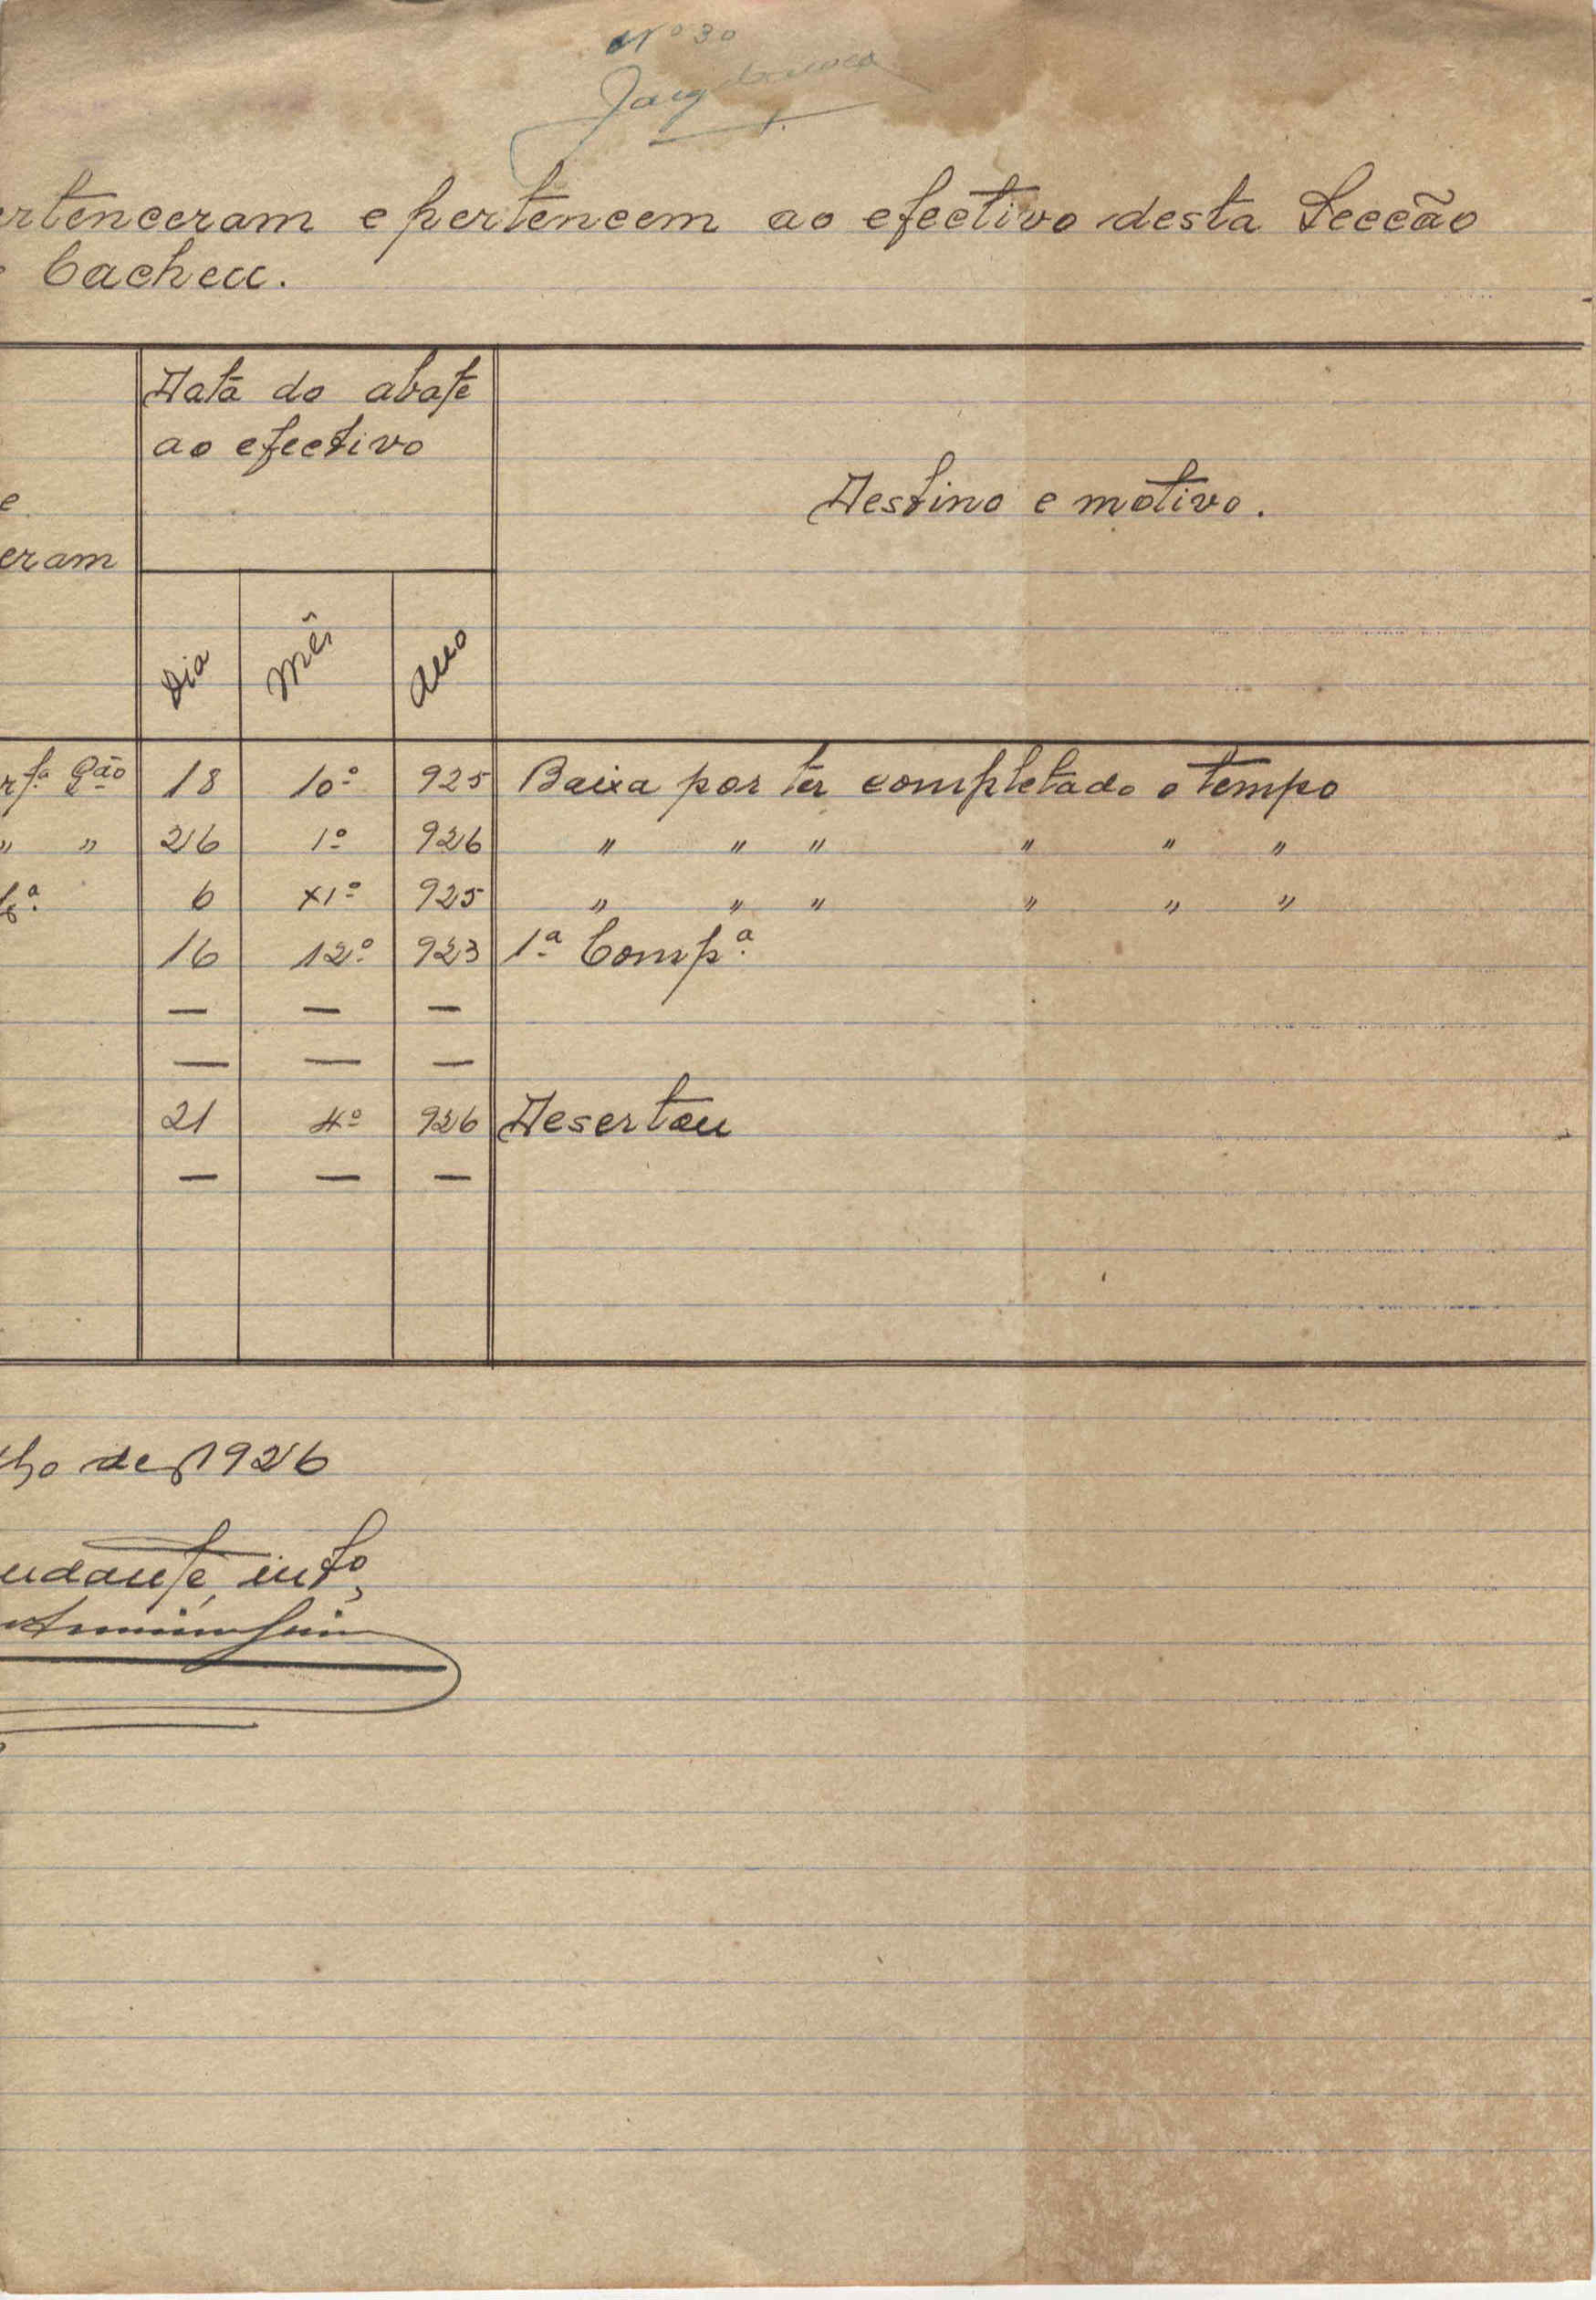 Nº 30
rtenceram e pertencem ao efectivo desta Secção
Cacheu.
Data do abate
ao efectivo
Destino e motivo.
e
eram
Dia Mês Ano
rfª Gão 18 10º 925 Baixa por ter completado o tempo
" " 26 1º 926 " " " " " "
6 XIº 925 " " " " " "
16 12º 923 1ª Compª
— — —
— — —
21 4º 926 Desertou
— — —
lho de 1926
udante, intº,